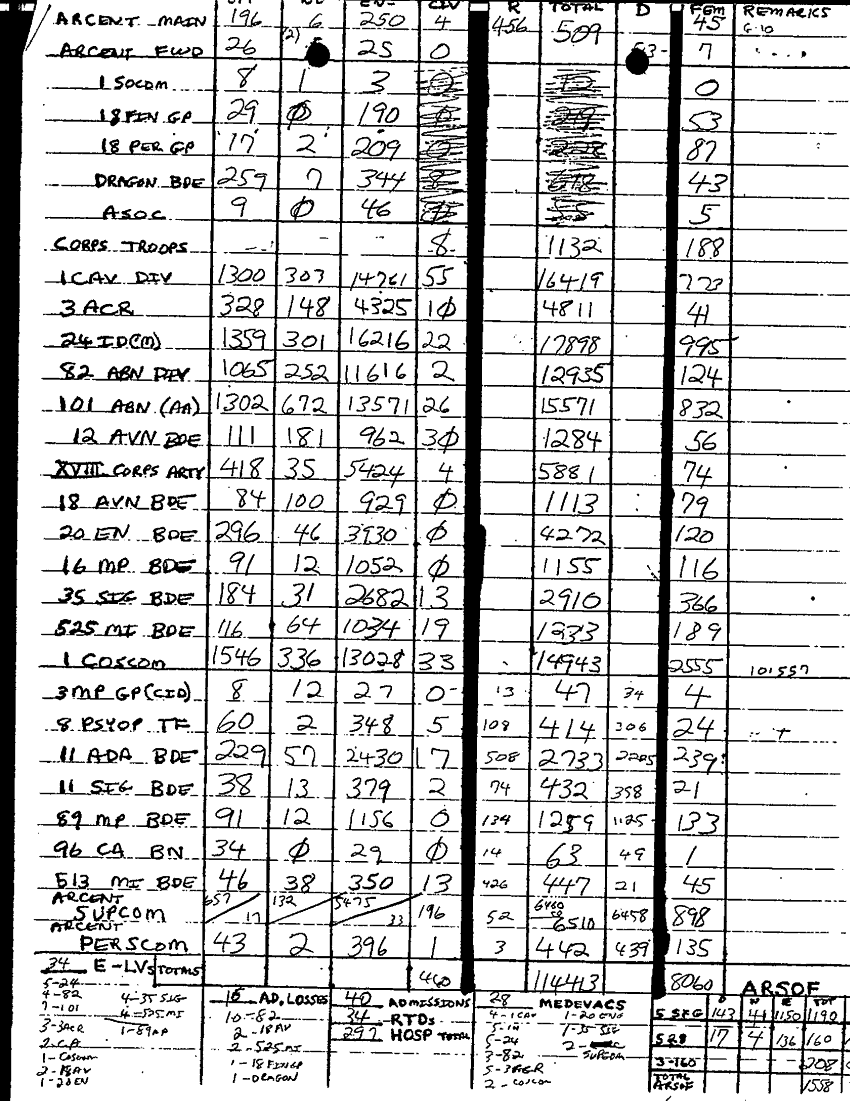 CIV R TOTAL D FEM REMARKS
ARCENT MAIN 196 6 250 4 456 509 45 6-10
ARCENT FWD 26 (2) 25 0 53- 7
1 SOCOM 8 1 3 0
18 FIN GP 29 Ø 190 53
18 PER GP 17 2 209 87
DRAGON BDE 259 7 344 43
ASOC 9 Ø 46 5
CORPS TROOPS - - - 8 1132 188
1 CAV DIV 1300 303 14761 55 16419 773
3 ACR 328 148 4325 1Ø 4811 41
24 ID(M) 1359 301 16216 22 17898 995
82 ABN DIV 1065 252 11616 2 12935 124
101 ABN (AA) 1302 672 13571 26 15571 832
12 AVN BDE 111 181 962 3Ø 1284 56
XVIII CORPS ARTY 418 35 5424 4 5881 74
18 AVN BDE 84 100 929 Ø 1113 79
20 EN BDE 296 46 3930 Ø 4272 120
16 MP BDE 91 12 1052 Ø 1155 116
35 SIG BDE 184 31 2682 13 2910 366
525 MI BDE 116 64 1034 19 1233 189
1 COSCOM 1546 336 13028 33 14943 2555 101557
3 MP GP (CID) 8 12 27 0 13 47 34 4
8 PSYOP TF 60 2 348 5 108 414 306 24
11 ADA BDE 229 57 2430 17 508 2733 2225 239
11 SIG BDE 38 13 379 2 74 432 358 21
89 MP BDE 91 12 1156 0 134 1259 1125 133
96 CA BN 34 Ø 29 Ø 14 63 49 1
513 MI BDE 46 38 350 13 426 447 21 45
ARCENT SUPCOM 657 17 132 5475 33 196 52 6460 50 6510 6458 898
ARCENT PERSCOM 43 2 396 1 3 442 439 135
34 E-LVS TOTALS 460 114413 8060 ARSOF
5-24
4-82 4-35 SIG
7-101 4-525 MI
3-3ACR 1-89MP
2-CA
1-COSCOM
2-18AV
1-20EN
16 AD. LOSSES
10-82
2-18AV
2-525MI
1-18FINGP
1-DRAGON
40 ADMISSIONS
34 RTDs
297 HOSP TOTAL
28 MEDEVACS
4-1CAV 1-20 ENG
5-24 1-35-SIG
3-82 2- SUPCOM
5-3ACR
2-COSCOM
O W E TOT
5 SFG 143 44 1150 1190
17 4 136 160
3-160 208
TOTAL ARSOF 1558